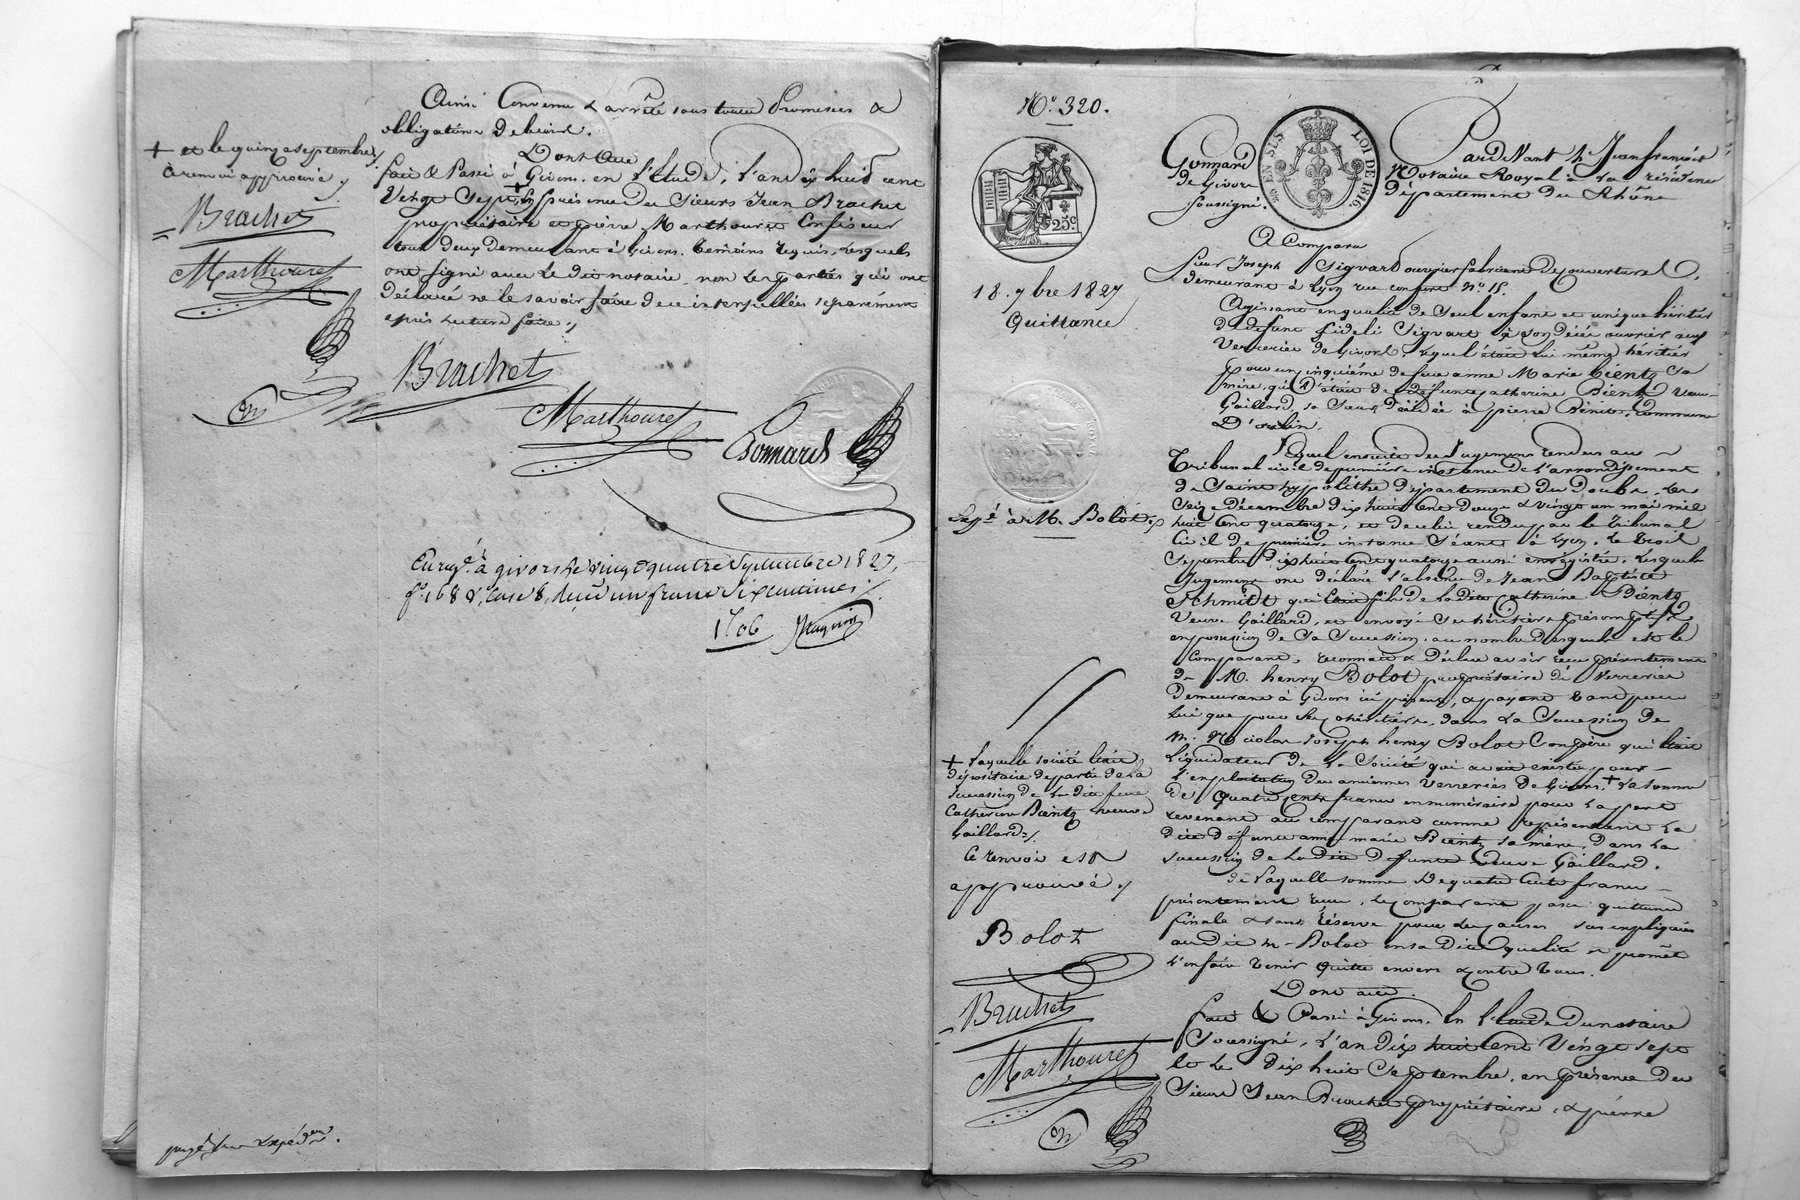 Ainsi Convenu & arrêté sous toutes Promesses &
obligations de droit.
Dont Acte
fait & Passé à Givors, en l'Etude, l'an dix huit cent
Vingt Sept + En présence des Sieurs Jean Brachet
propriétaire et pierre Marthouret Confiseur
tous deux demeurant à Givors. temoins requis, lesquels
ont signé avec le dit notaire, non les parties qui ont
déclaré ne le savoir faire de ce interpellées séparément
après lecture faite ./
+ et le quinze septembre /
à renvoi approuvé /
Brachet
Marthouret
Brachet
Marthouret
Gonnard
Enregé. à givors le vingt quatre Septembre 1827,
fo. 168 Vo, Case 8, reçu un franc dix centimes /
N° 320.
25c
LOI DE 1816
18. 7bre 1827
Quittance
Expé à M. Bolot /
Pardevant Me Jean françois
Gonnard Notaire Royal à la résidence
de Givors Département du Rhône
soussigné.
A Comparu
sieur Joseph Sigvart ouvrier fabricant de couvertures,
demeurant à Lyon rue confort N° 15.
Agissant en qualité de Seul enfant et unique héritier
de défunt fidèle Sigvart à son décès ouvrier aux
Verreries de Givors, lequel était lui même héritier
pour un cinquième de feue anne Marie Bientz sa
mère, qui l'était de défunte Catherine Bientz veuve
Gaillard, sa Soeur décédée à pierre Bénite, commune
D'oulin.
Lequel ensuite des Jugemens rendus au
Tribunal civil de première instance de l'arrondissement
de Saint hyppolithe département du Doubs, les
Seize décembre dix huit cent douze & vingt un mai mil
huit Cent quatorze, et de celui rendu par le tribunal
Civil de première instance Séant à Lyon, le trois
Septembre dix huit cent quatorze aussi enregistré, lesquels
Jugemens ont déclaré l'absence de Jean Baptiste
Schmidt qui était fils de la dite Catherine Bientz
Veuve Gaillard, et envoyé ses héritiers présomptifs
en possession de Sa Succession. au nombre desquels est le
Comparant, reconnait & déclare avoir reçu présentement
de M. henry Bolot propriétaire de Verreries
Demeurant à Givors ici présent, & payant tant pour
lui que pour ses cohéritiers, dans la Succession de
M. Nicolas Joseph henry Bolot Compère qui était
Liquidateur de la Société qui avait existé pour
l'exploitation des anciennes verreries de Givors. + la somme
de quatre cents francs en numéraire pour la part
revenant au comparant comme représentant la
dite défunte anne marie Bientz sa mère, dans la
succession de la dite défunte veuve Gaillard.
de laquelle somme de quatre Cents francs
présentement reçue, le comparant passe quittance
finale & sans réserve pour les causes sus expliquées
audit M. Bolot en sa dite qualité et promet
l'en faire tenir quitte envers & contre tous.
Dont acte.
fait & Passé à Givors. En l'Etude du notaire
Soussigné, l'an dix huit cent Vingt sept
Et le dix huit Septembre. en présence des
Sieurs Jean Brachet propriétaire, & pierre
+ laquelle société était
dépositaire de partie de la
succession de la dite feue
Catherine Bientz veuve
Gaillard ./
Ce renvoi est
approuvé ./
Bolot
Brachet
Marthouret